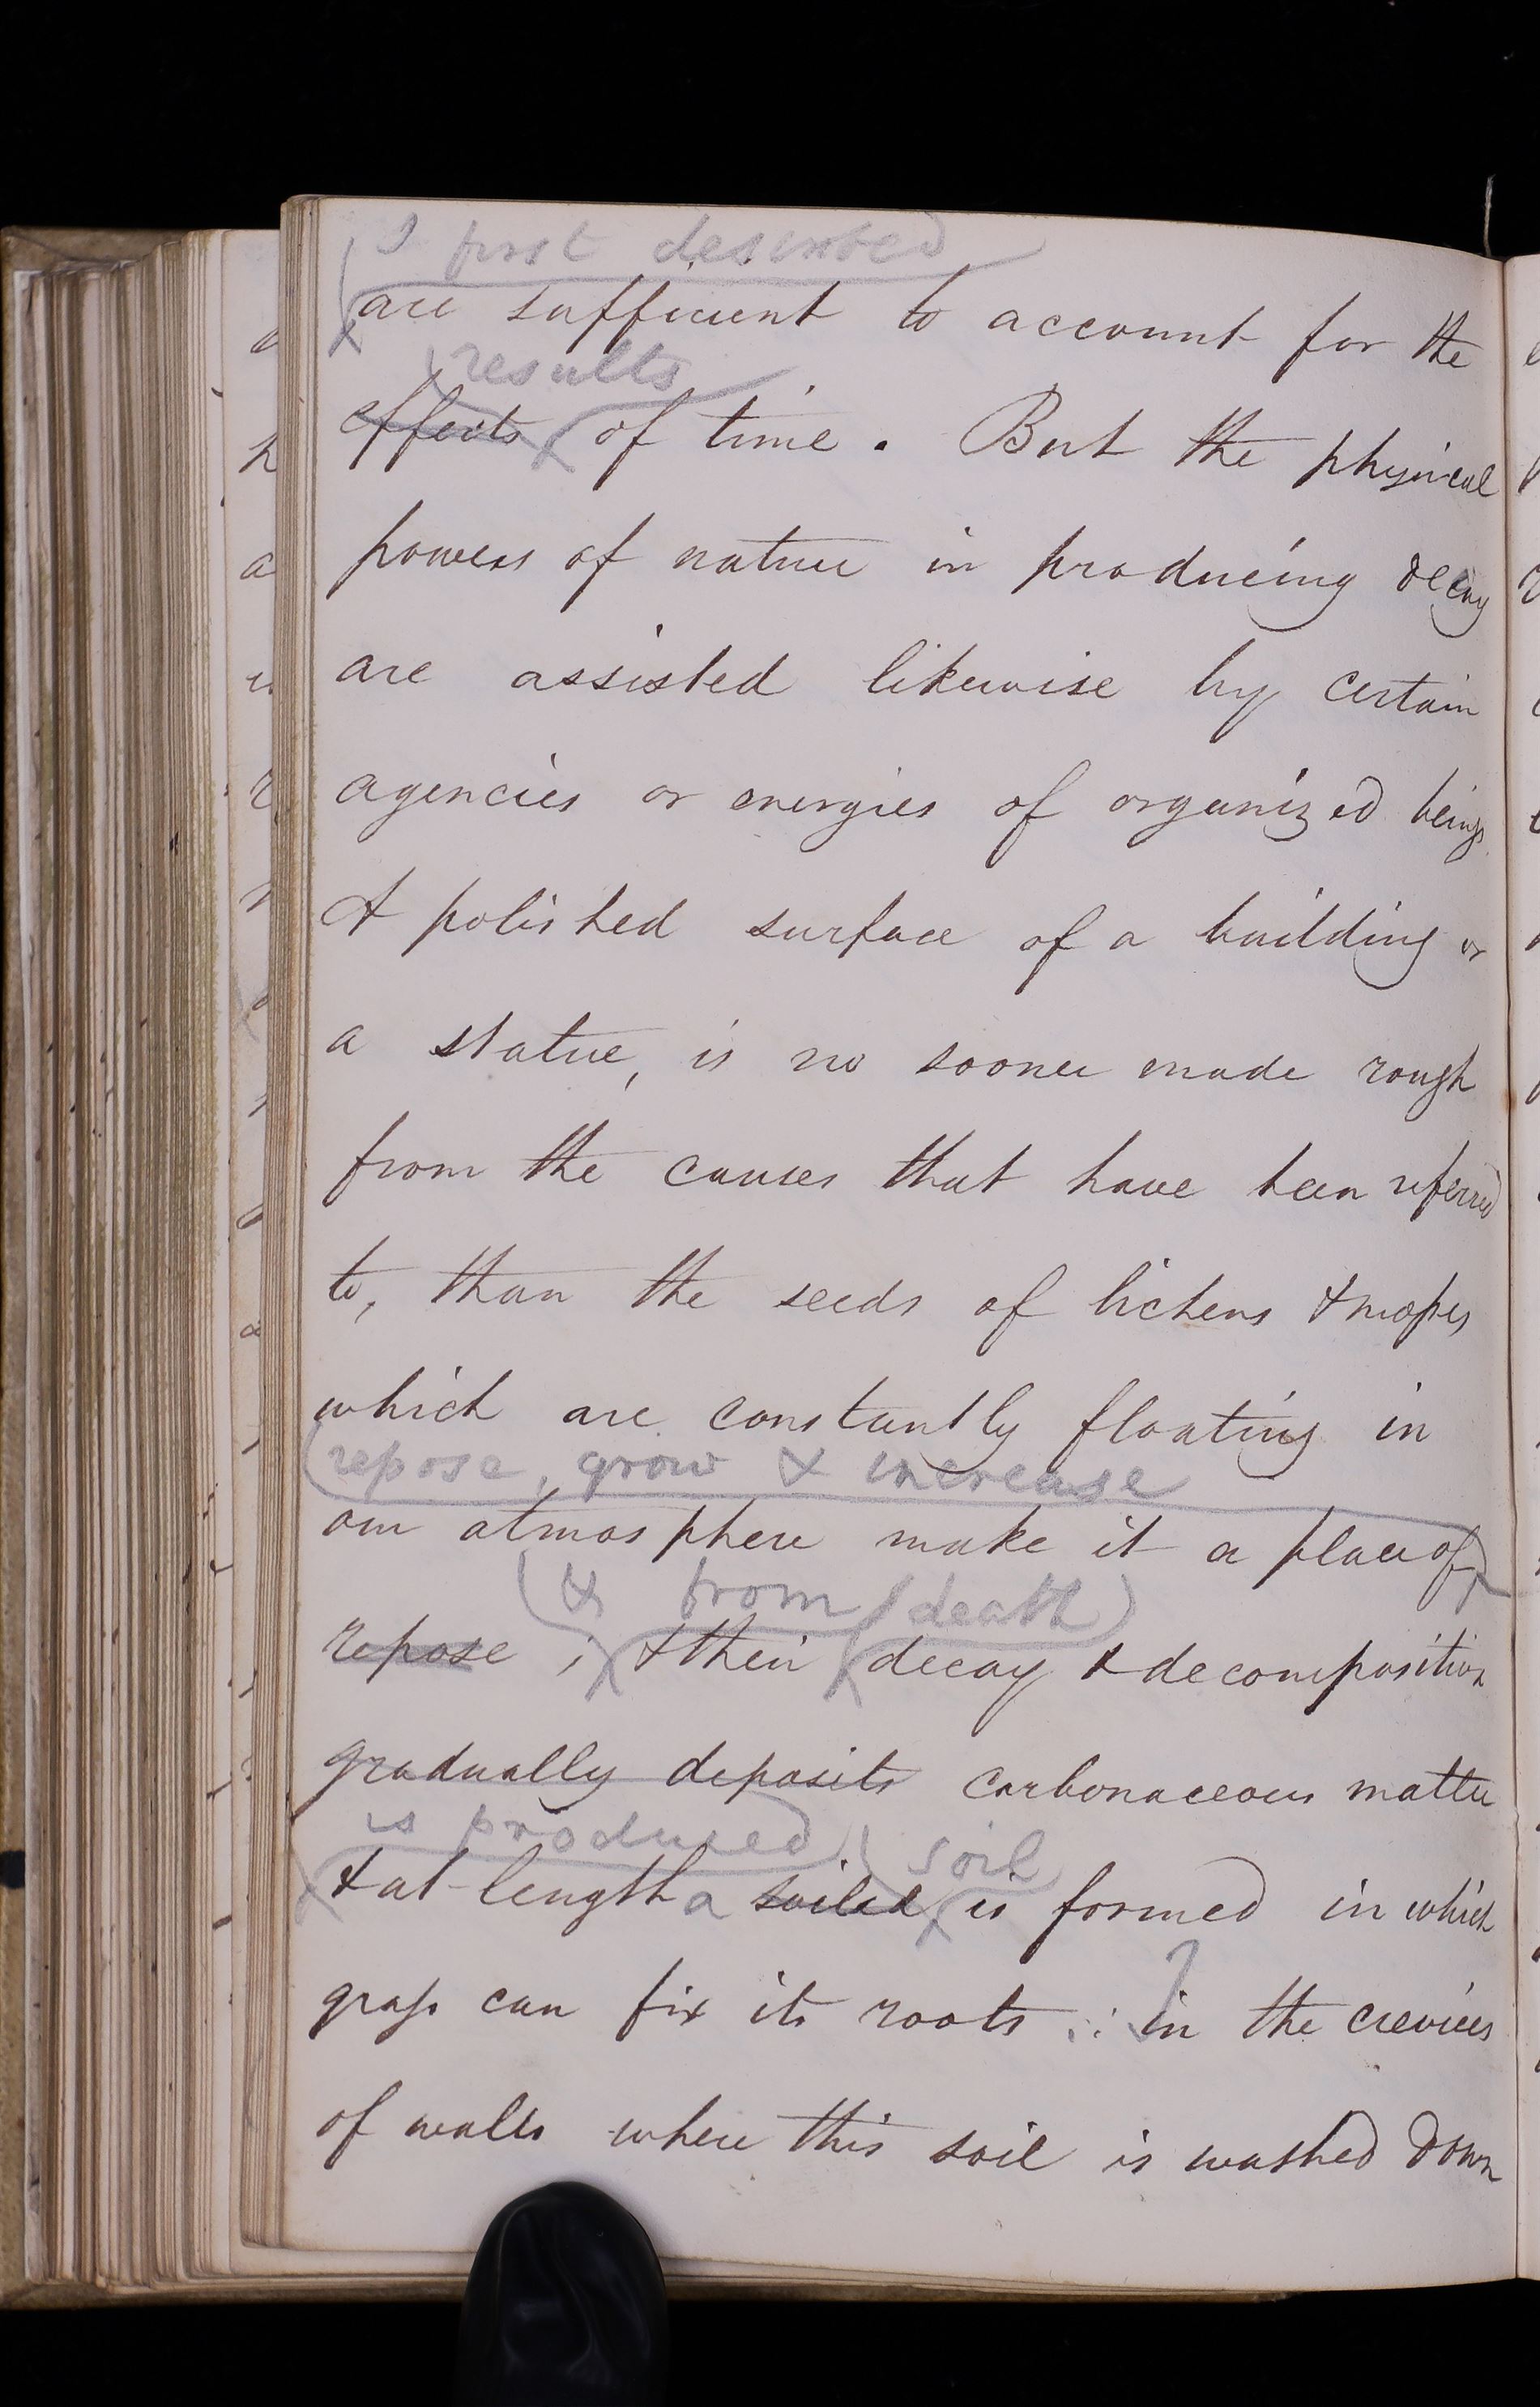 I first described
are sufficient to account for the
results
effects of time. But the physical
powers of nature in producing decay
are assisted likewise by certain
agencies or energies of organized beings.
A polished surface of a building or
a statue, is no sooner made rough
from the causes that have been referred
to, than the seeds of lichens & mosses
which are constantly floating in
repose, grow & increase
our atmosphere make it a place of
& from death
repose; & their decay & decomposition
gradually deposits carbonaceous matter
is produced soil
& at length a is formed in which
grass can fix its roots : in the crevices
of walls where this soil is washed down